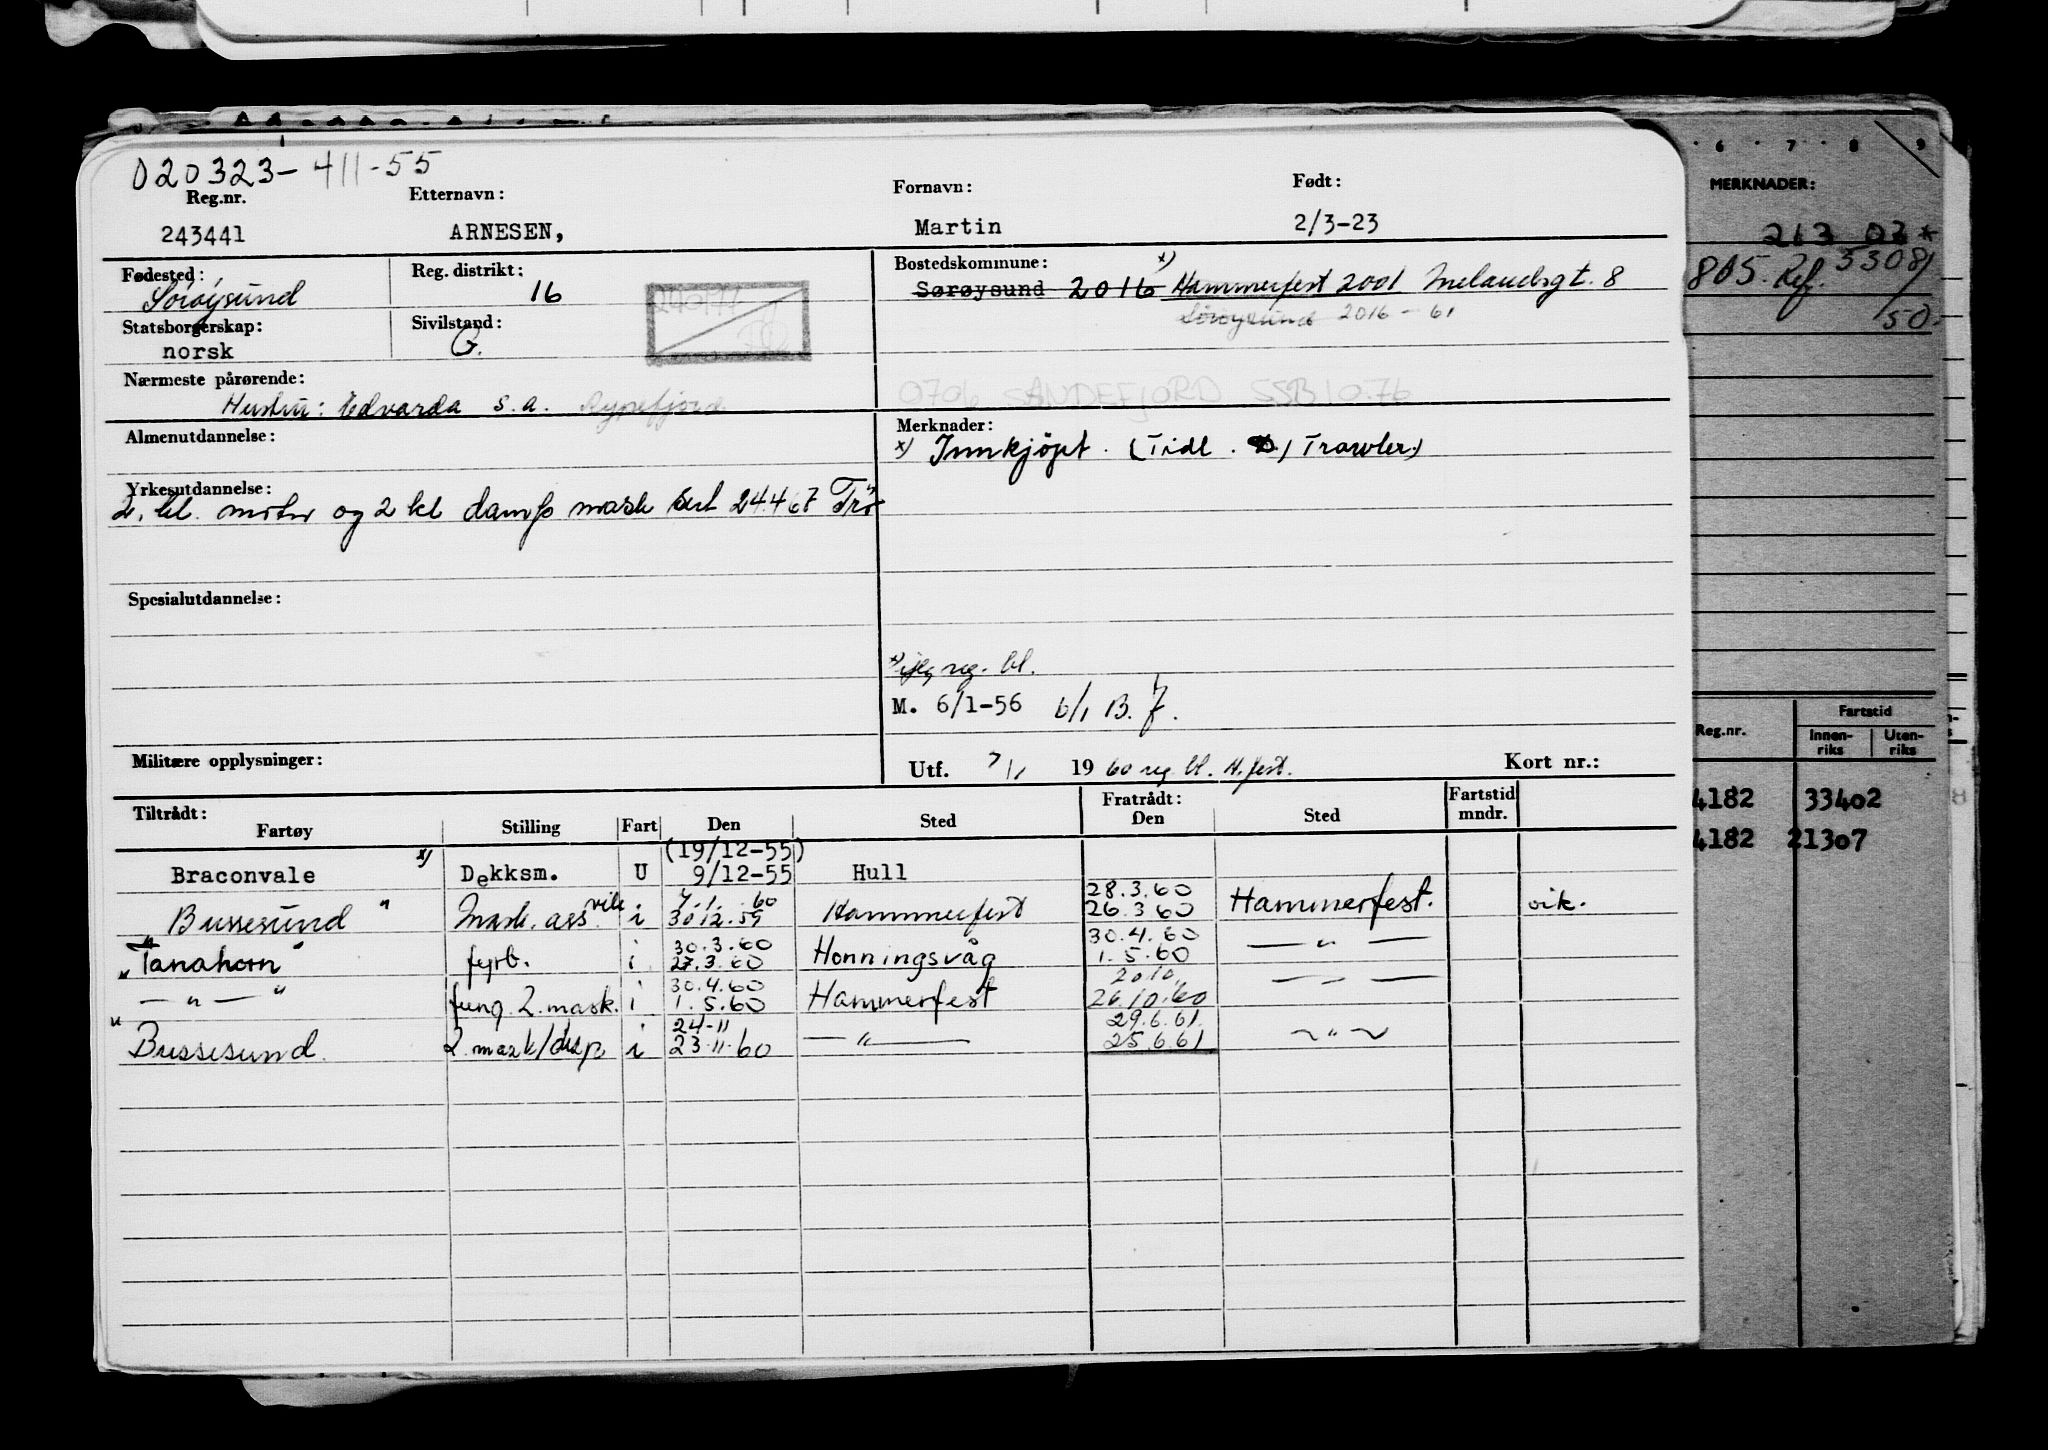 020323-411-55
Reg.nr. Etternavn: Fornavn: Født:
243441 ARNESEN, Martin 2/3-23
Fødested: Reg. distrikt: Bostedskommune: x)
Sørøysund 16 Sørøysund 2016 Hammerfest 2001 Melandsgt. 8
Sørøysund 2016 - 61
Statsborgerskap: Sivilstand:
norsk G.
Nærmeste pårørende:
Hustru: Edvarda s.a. Rypefjord
0706 SANDEFJORD SSB 10.76
Almenutdannelse: Merknader:
x) Innkjøpt. (Tidl. D/Trawler)
Yrkesutdannelse:
2. kl. motor og 2 kl damp mask sert 24.4.67 Trø
Spesialutdannelse:
reg. bl.
M. 6/1-56 6/1 B. 7.
Militære opplysninger: Utf. 7/1 1960 reg. bl. H.fest. Kort nr.:
Tiltrådt: Fratrådt: Fartstid
Fartøy Stilling Fart Den Sted Den Sted mndr.
(19/12-55)
Braconvale x) Dekksm. U 9/12-55 Hull
7.1.60 28.3.60
Bussesund " Mask. ass. vik. i 30.12.59 Hammerfest 26.3.60 Hammerfest. vik.
30.3.60 30.4.60
"Tanahorn" fyrb. i 27.3.60 Honningsvåg 1.5.60 — " —
30.4.60 20.10.
— " — " fung. 2. mask. i 1.5.60 Hammerfest 26.10.60 — " —
24-11 29.6.61.
" Bussesund. 2. mask/disp. i 23.11.60 — " — 25.6.61 ~ " ~
6 7 8 9
MERKNADER:
213 02 *
865. Ref. 33081
50.
Reg.nr. Fartstid
Innen-riks Uten-riks
4182 33402
4182 21307